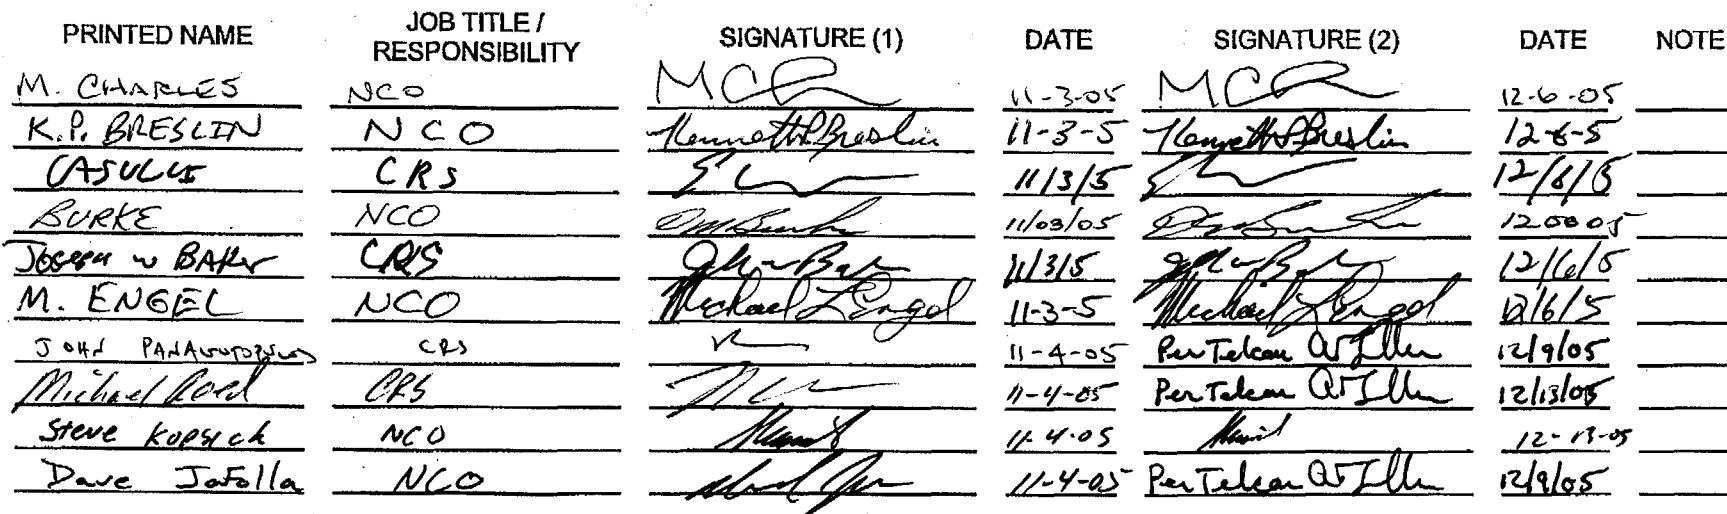 PRINTED NAME JOB TITLE / RESPONSIBILITY SIGNATURE (1) DATE SIGNATURE (2) DATE NOTE
M. CHARLES NCO MC 11-3-05 MC 12-6-05
K.P. BRESLIN NCO Kenneth P Breslin 11-3-5 Kenneth P Breslin 12-6-5
CASULLI CRS 11/3/5 12/6/5
BURKE NCO 11/03/05
Joseph W Baker CRS 11/3/5 12/6/5
M. ENGEL NCO Michael L Engel 11-3-5 Michael L Engel 12/6/5
JOHN CRS 11-4-05 Per Telcon 12/9/05
Michael CRS 11-4-05 Per Telcon 12/13/05
Steve Kopsick NCO 11-4-05 12-13-05
Dave Jafolla NCO 11-4-05 Per Telcon 12/9/05